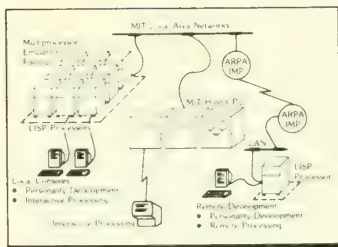 MIT Local Area Networks
Multiprocessor
Emulation
ARPA
IMP
ARPA
IMP
LISP Processors
LAN
LISP
Processor
Local Consoles
● Personality Development
● Interactive Processing
Interactive Processing
Remote Development
● Personality Development
● Remote Processing